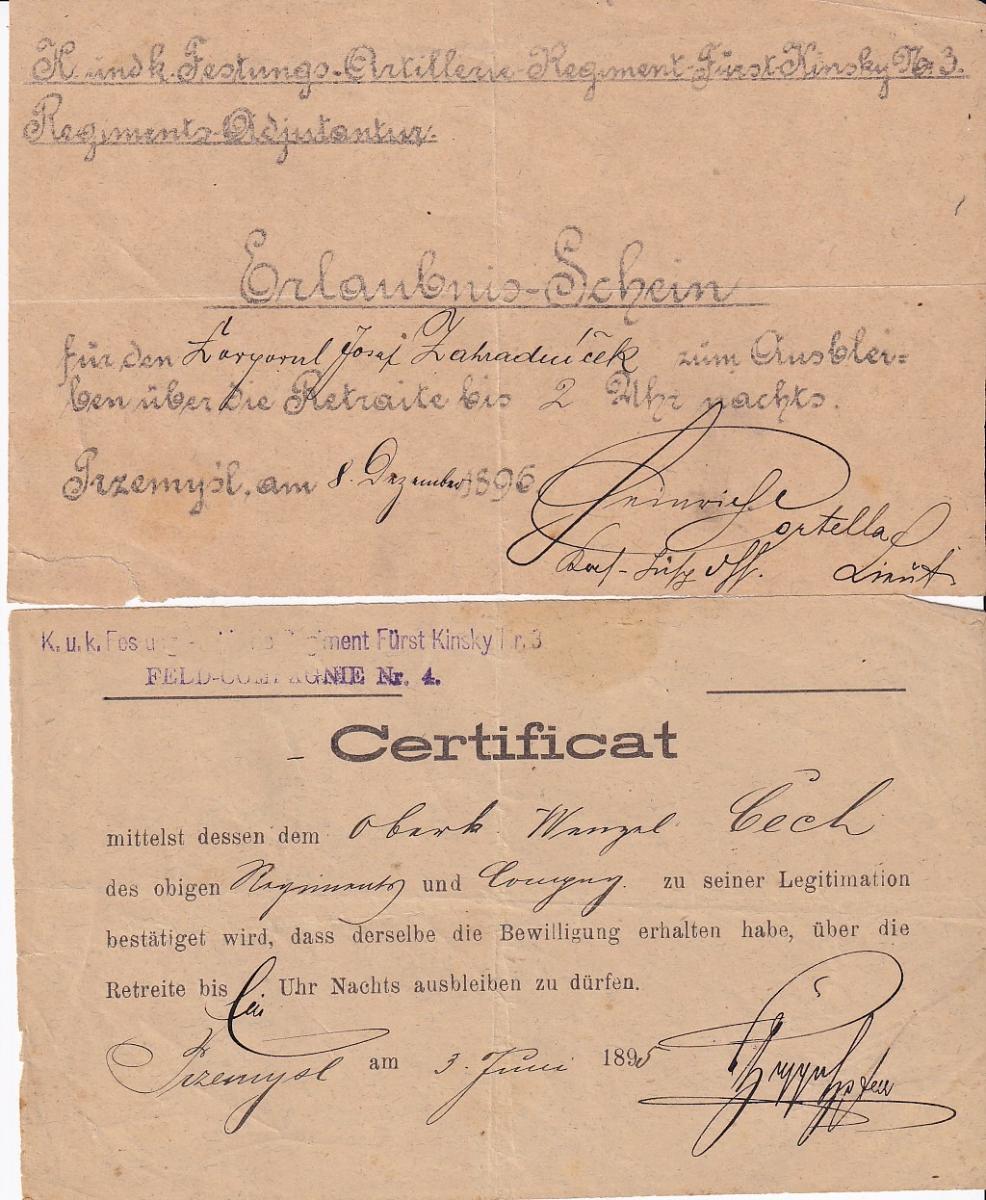 K. und k. Festungs-Artillerie-Regiment Fürst Kinsky No. 3.
Regiments-Adjutantur.
Erlaubnis-Schein
für den Korporal Josef Zahradníček zum Ausblei-
ben über die Retraite bis 2 Uhr nachts.
Przemyśl, am 8. Dezember 1896
Heinrich Portella
Lieut
K. u. k. Festungs-Artillerie-Regiment Fürst Kinsky Nr. 3
FELD-COMPAGNIE Nr. 4.
Certificat
mittelst dessen dem Oberk. Wenzel Čech
des obigen Regiments und Compag. zu seiner Legitimation
bestätiget wird, dass derselbe die Bewilligung erhalten habe, über die
Retreite bis Uhr Nachts ausbleiben zu dürfen.
Przemysl am 3. Juni 1895